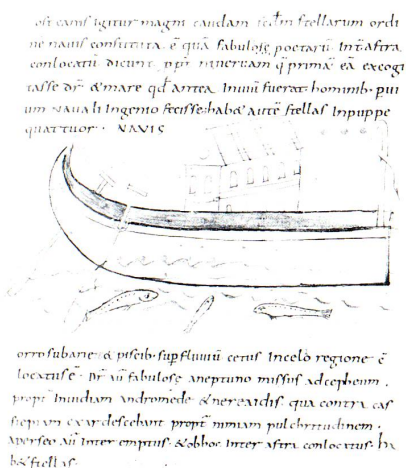 ost canis igitur magni caudam ſedm ſtellarum ordi
ne navis conſtituta. ē quā fabulosę poetarū Inť aſtra
conlocatū dicunt. ppť minervam q̄ primā eā excogi
taſſe dr̄ & mare qd̄ antea Invium fuerat hominib. pui
um navali Ingenio feciſſe. hab& autē ſtellas Inpuppe
quattuor. NAVIS
orro ſub arie & piſcib. ſup fluviū cetus Incelo regione ē
locatuſ ē. Dr̄ aū fabulosę aneptuno miſſuſ ad cepheum.
propť Invidiam andromede & nereaidiſ qua contra caſ
ſiepiam exardeſcebant propť nimiam pulchritudinem.
aperſeo aū Inter emptuſ. & obhoc Inter aſtra conlocatuſ. ha
b& ſtellaſ.